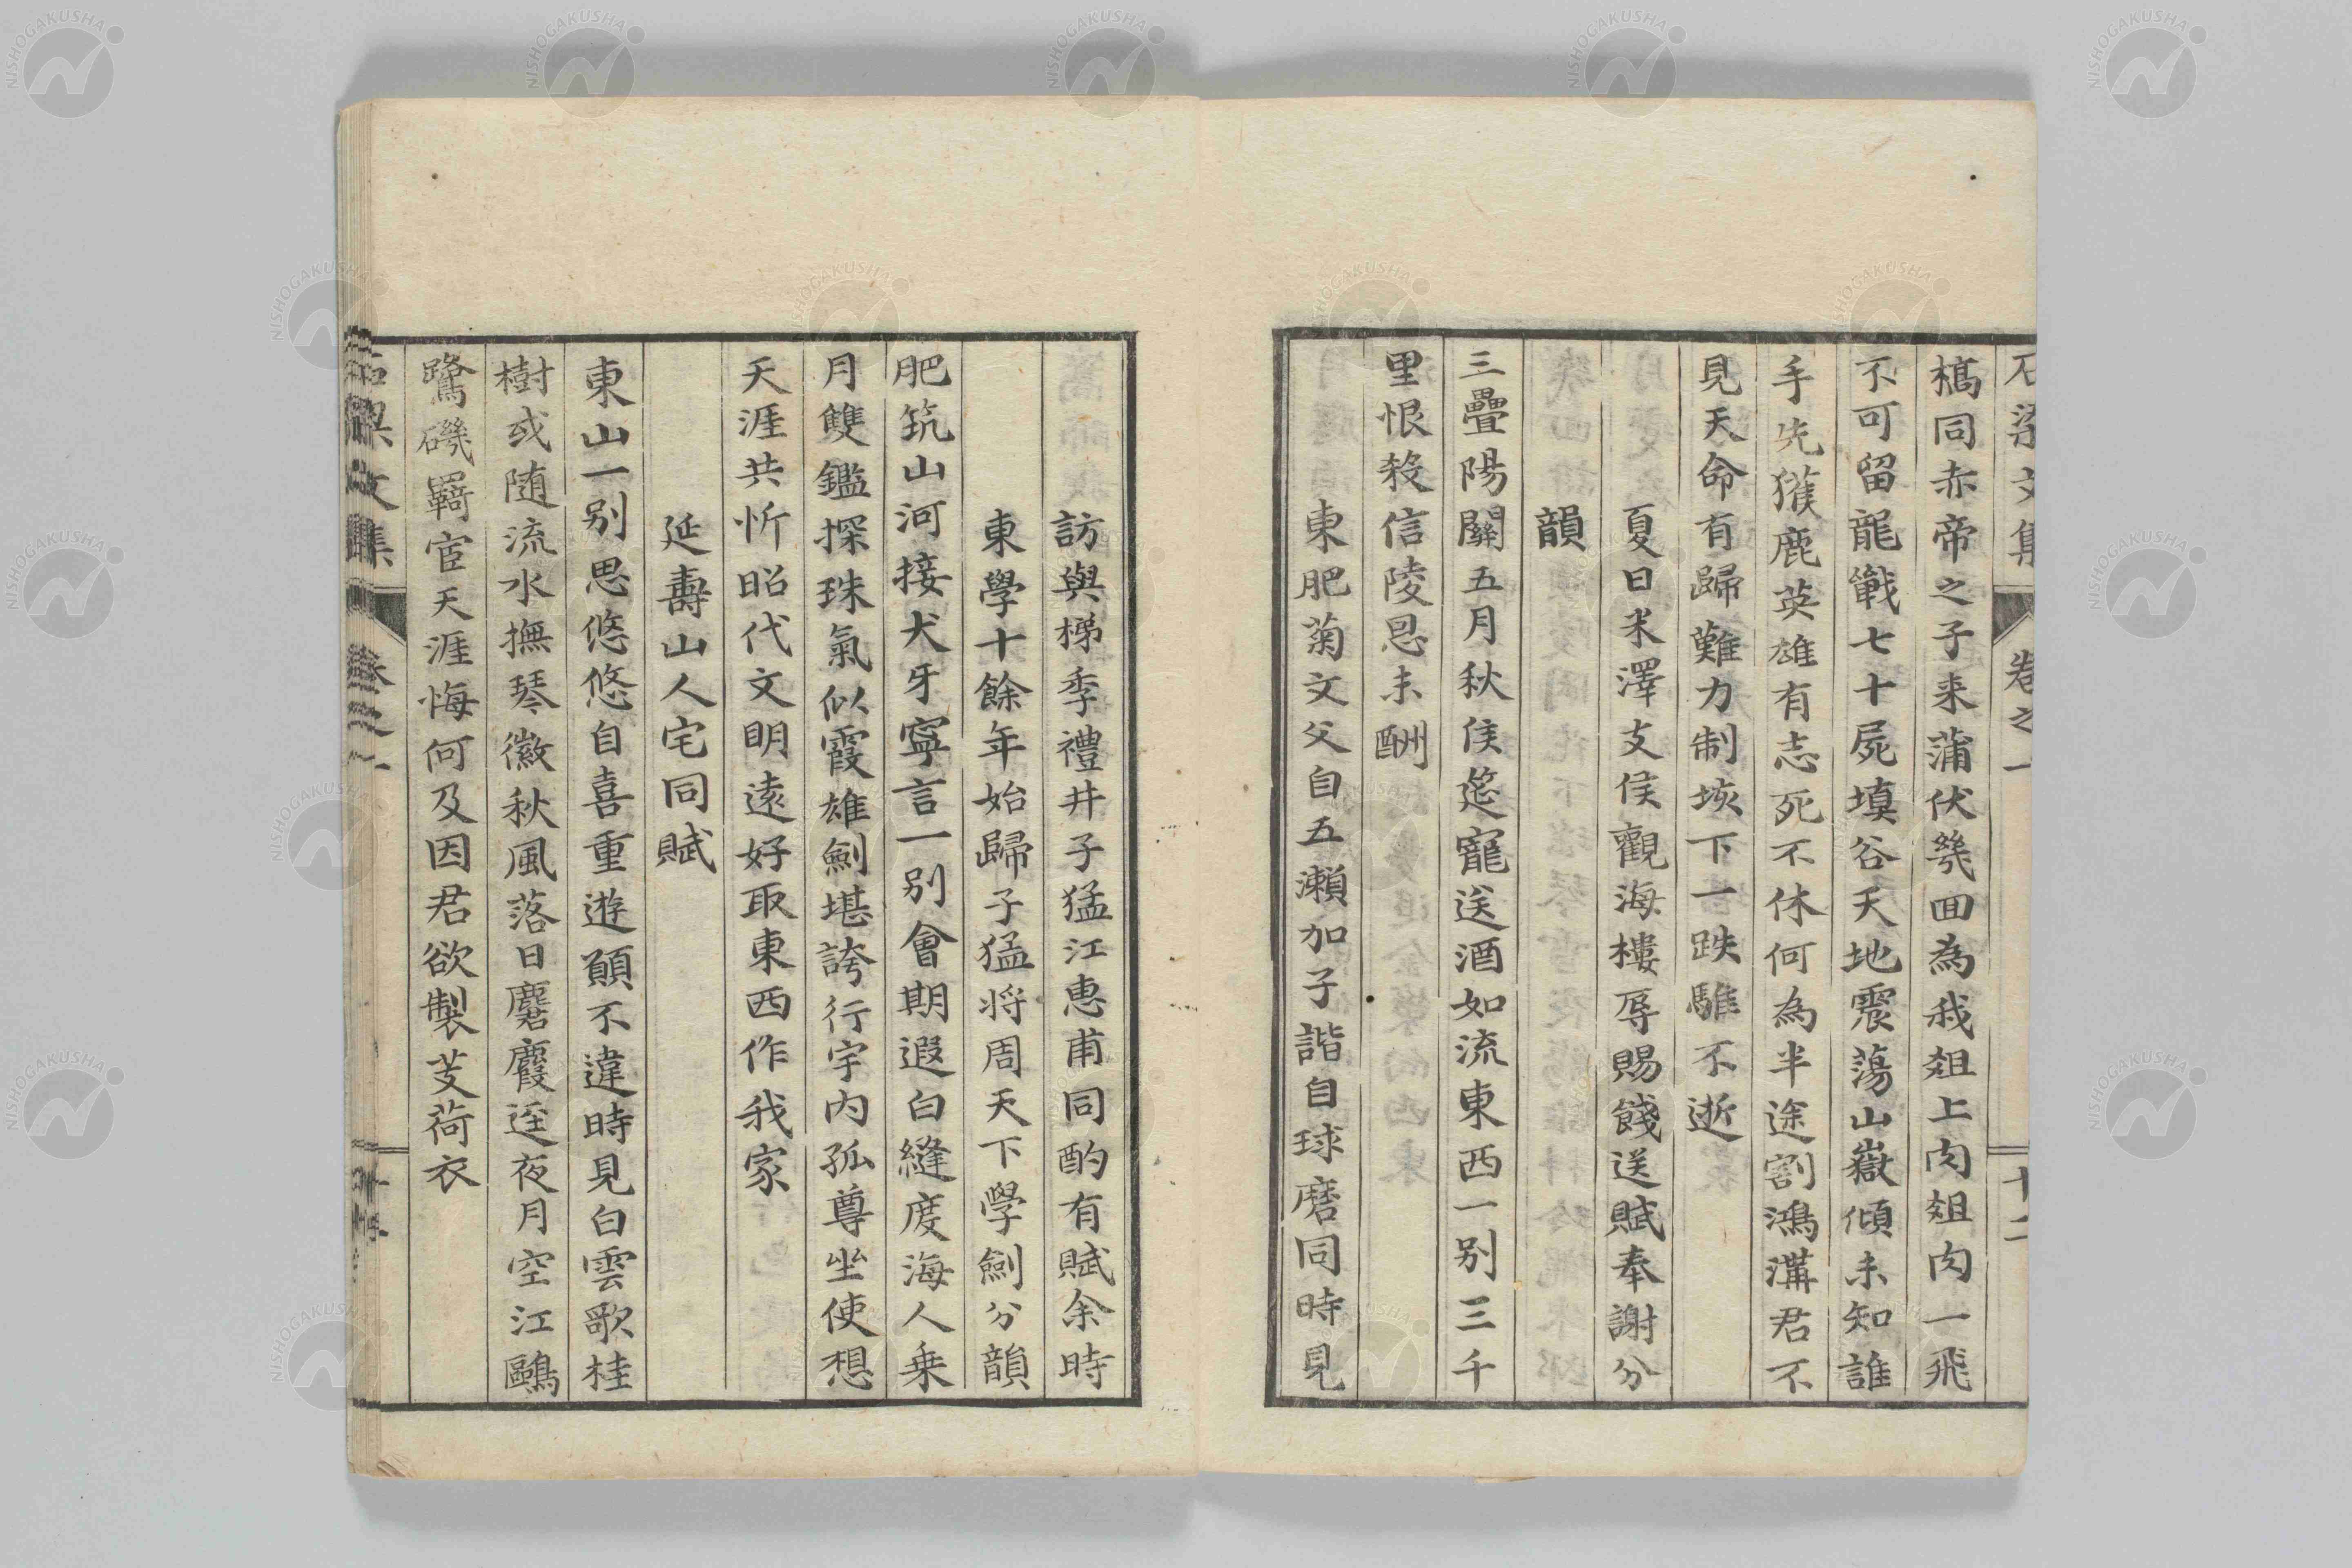 石梁文集 卷之一 十二
槁同赤帝之子来蒲伏幾回為我俎上肉俎肉一飛
不可留龍戰七十屍填谷天地震蕩山嶽傾未知誰
手先獲鹿英雄有志死不休何為半途割鴻溝君不
見天命有歸難力制垓下一跌騅不逝
夏日米澤支侯觀海樓辱賜餞送賦奉謝分
韻
三疊陽關五月秋侯筵寵送酒如流東西一別三千
里恨殺信陵恩未酬
東肥菊文父自五瀨加子諧自球磨同時見
訪與梯季禮井子猛江惠甫同酌有賦余時
東學十餘年始歸子猛将周天下學劍分韻
肥筑山河接犬牙寧言一別會期遐白縫度海人乗
月雙鑑探珠氣似霞雄劍堪誇行宇内孤尊坐使想
天涯共忻昭代文明遠好取東西作我家
延壽山人宅同賦
東山一別思悠悠自喜重遊願不違時見白雲歌桂
樹或随流水撫琴徽秋風落日麏麚逕夜月空江鷗
鷺磯羇宦天涯悔何及因君欲製芰荷衣
石梁文集 卷之一
NISHOGAKUSHA